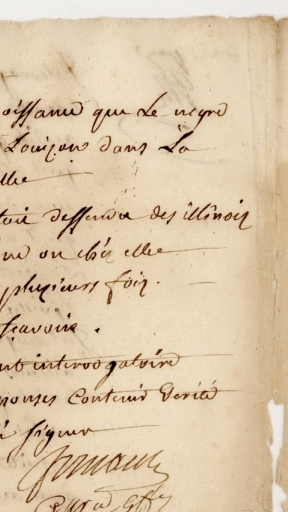 oissance que Le negre
Louison dans La
elle
toit dessendu des illinois
me ou chés elle
plusieurs fois.
scavoir.
ent interrogatoire
reponses contenir Verité
signer